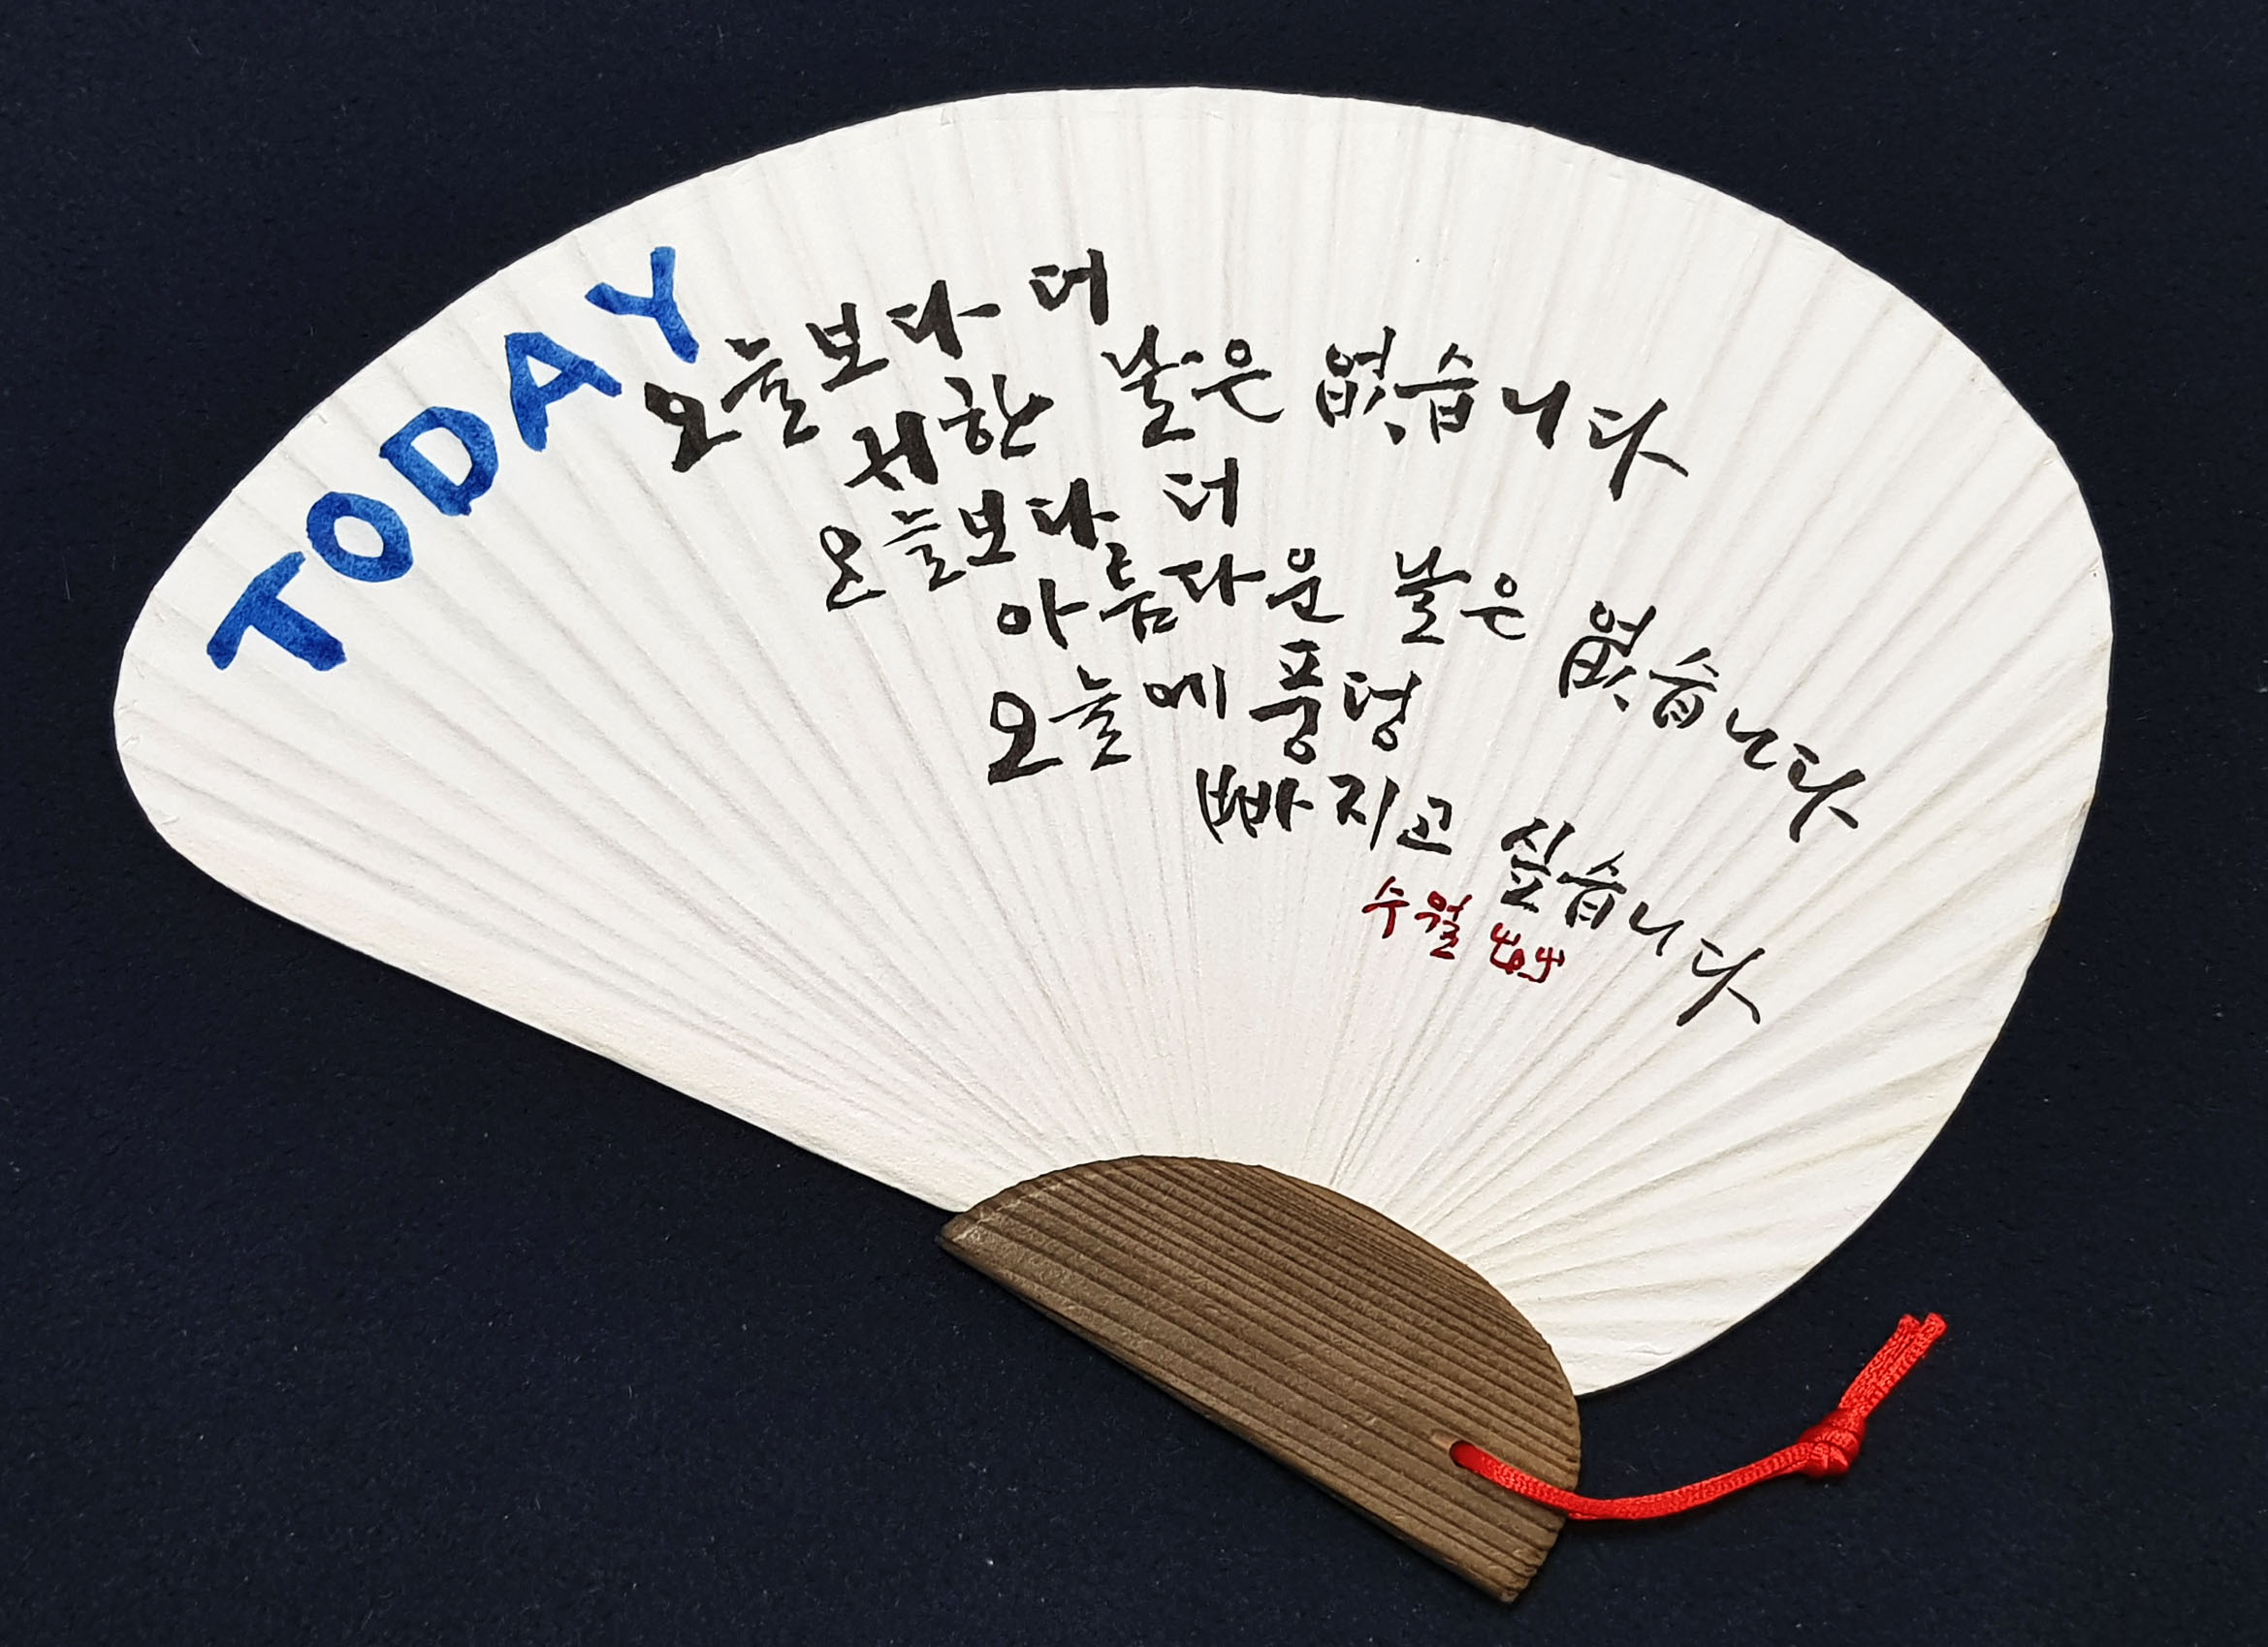 TODAY
오늘보다 더
귀한 날은 없습니다
오늘보다 더
아름다운 날은 없습니다
오늘에 풍덩
빠지고 싶습니다
수월